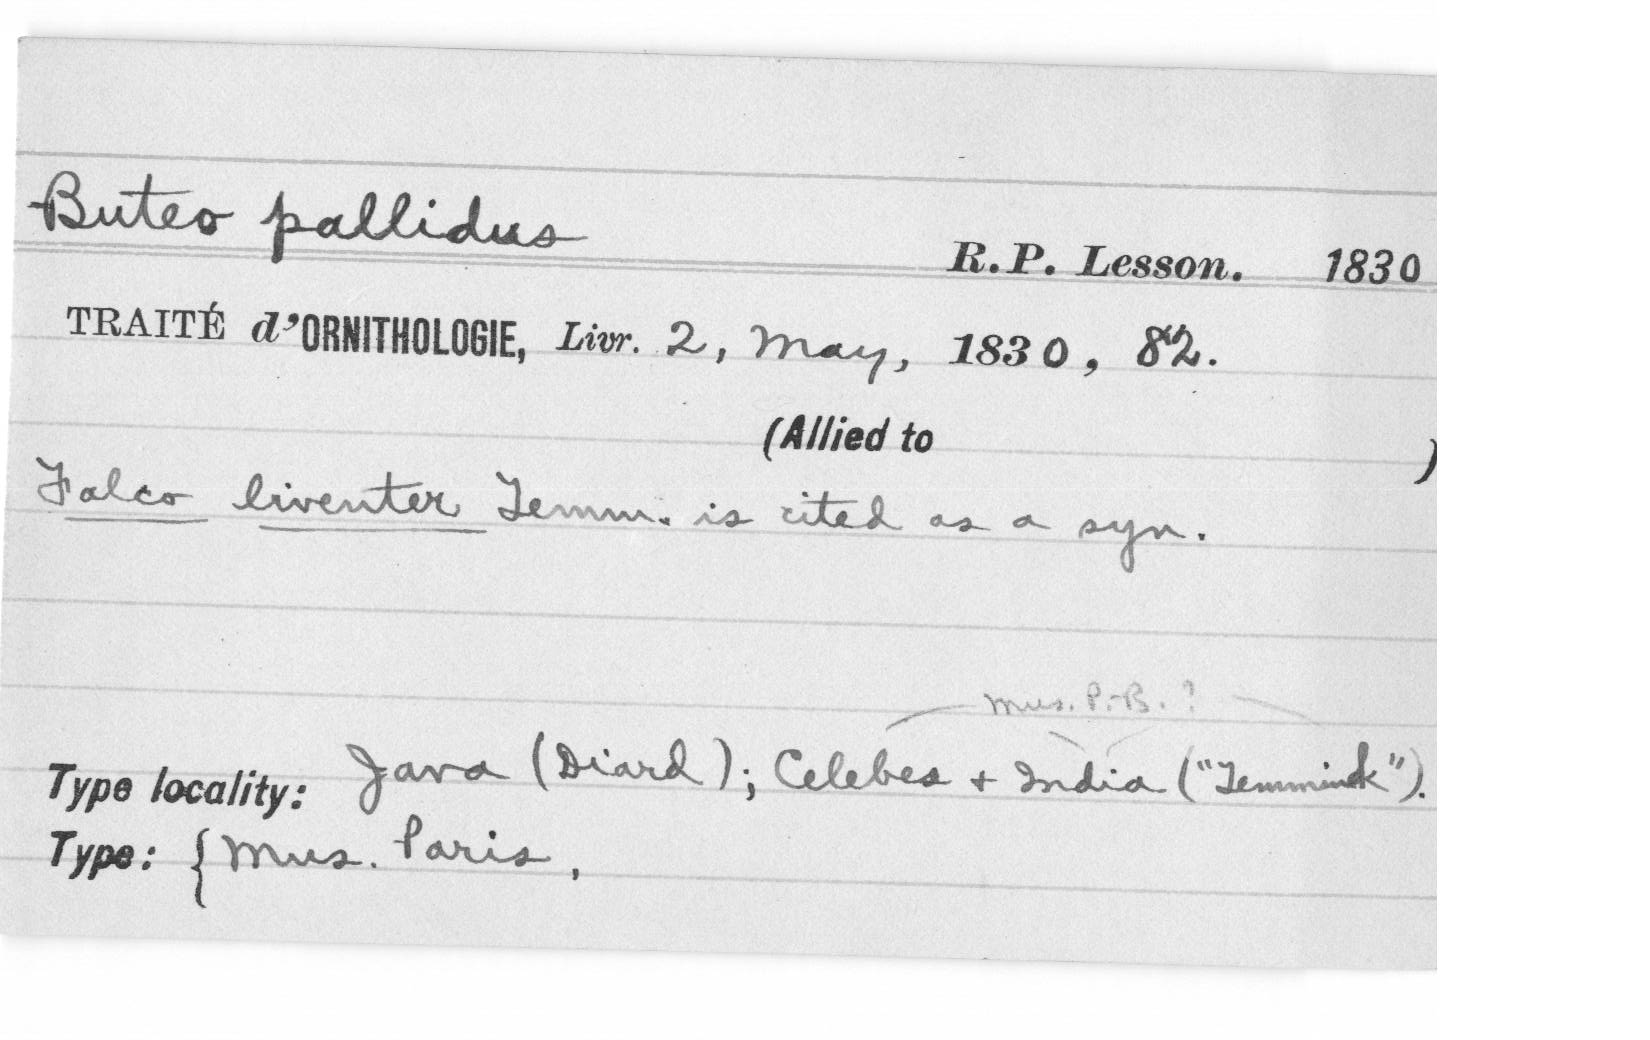 Buteo pallidus
R.P. Lesson. 1830
TRAITÉ d'ORNITHOLOGIE, Livr. 2, May, 1830, 82.
(Allied to )
Falco liventer Temm. is cited as a syn.
Mus. P.-B. ?
Type locality: Java (Diard); Celebes + India ("Temminck").
Type: { Mus. Paris,